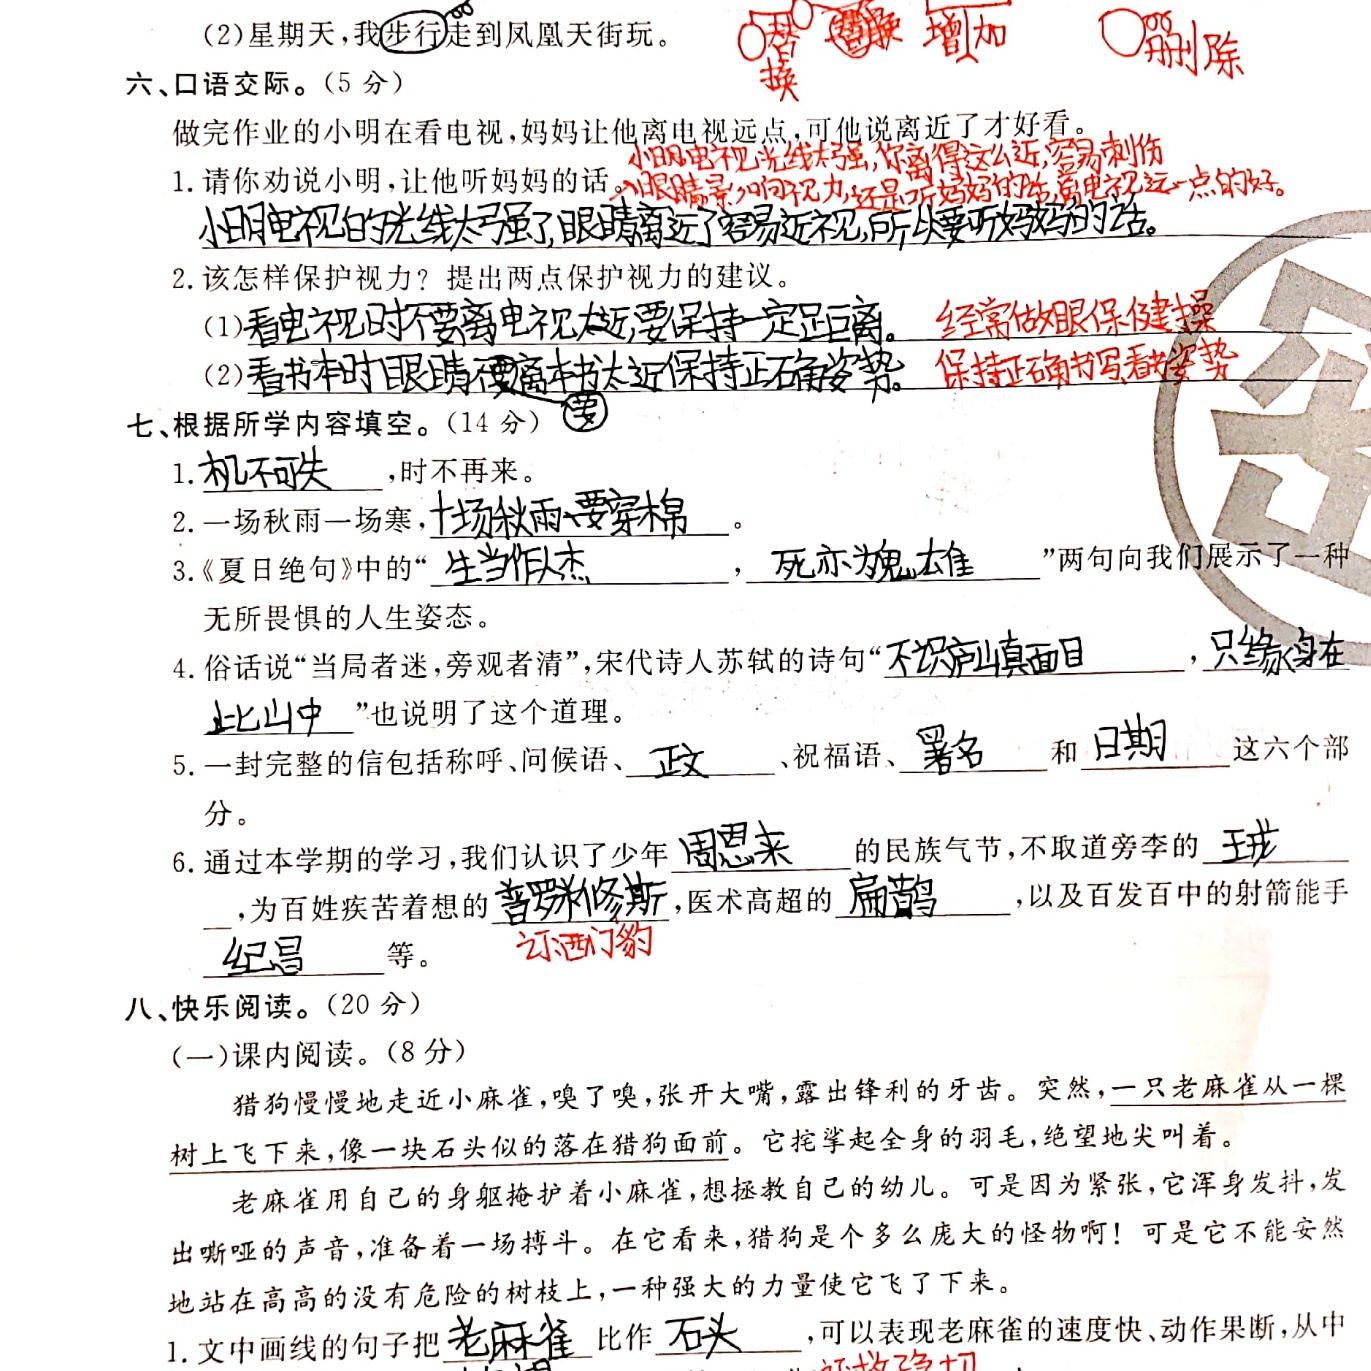 (2)星期天,我步行走到凤凰天街玩。
替换 增加 删除
六、口语交际。(5 分)
做完作业的小明在看电视,妈妈让他离电视远点,可他说离近了才好看。
小明电视光线太强,你离得这么近,容易刺伤
1. 请你劝说小明,让他听妈妈的话。
眼睛影响视力,还是听妈妈的话,离电视远一点的好。
小明电视的光线太强了,眼睛离近了容易近视,所以要听妈妈的话。
2. 该怎样保护视力? 提出两点保护视力的建议。
(1)看电视时不要离电视太近,要保持一定足距离。 经常做眼保健操
(2)看书本时眼睛不要离本书太近保持正确姿势。 保持正确书写看书姿势
要
七、根据所学内容填空。(14 分)
1. 机不可失,时不再来。
2. 一场秋雨一场寒,十场秋雨要穿棉。
3.《夏日绝句》中的“生当作人杰,死亦为鬼雄”两句向我们展示了一种
无所畏惧的人生姿态。
4. 俗话说“当局者迷,旁观者清”,宋代诗人苏轼的诗句“不识庐山真面目,只缘身在
此山中”也说明了这个道理。
5. 一封完整的信包括称呼、问候语、正文、祝福语、署名和日期这六个部
分。
6. 通过本学期的学习,我们认识了少年周恩来的民族气节,不取道旁李的王戎
,为百姓疾苦着想的普罗米修斯,医术高超的扁鹊,以及百发百中的射箭能手
纪昌等。 西门豹
八、快乐阅读。(20 分)
(一)课内阅读。(8 分)
猎狗慢慢地走近小麻雀,嗅了嗅,张开大嘴,露出锋利的牙齿。突然,一只老麻雀从一棵
树上飞下来,像一块石头似的落在猎狗面前。它挓挲起全身的羽毛,绝望地尖叫着。
老麻雀用自己的身躯掩护着小麻雀,想拯救自己的幼儿。可是因为紧张,它浑身发抖,发
出嘶哑的声音,准备着一场搏斗。在它看来,猎狗是个多么庞大的怪物啊! 可是它不能安然
地站在高高的没有危险的树枝上,一种强大的力量使它飞了下来。
1. 文中画线的句子把老麻雀比作石头,可以表现老麻雀的速度快、动作果断,从中